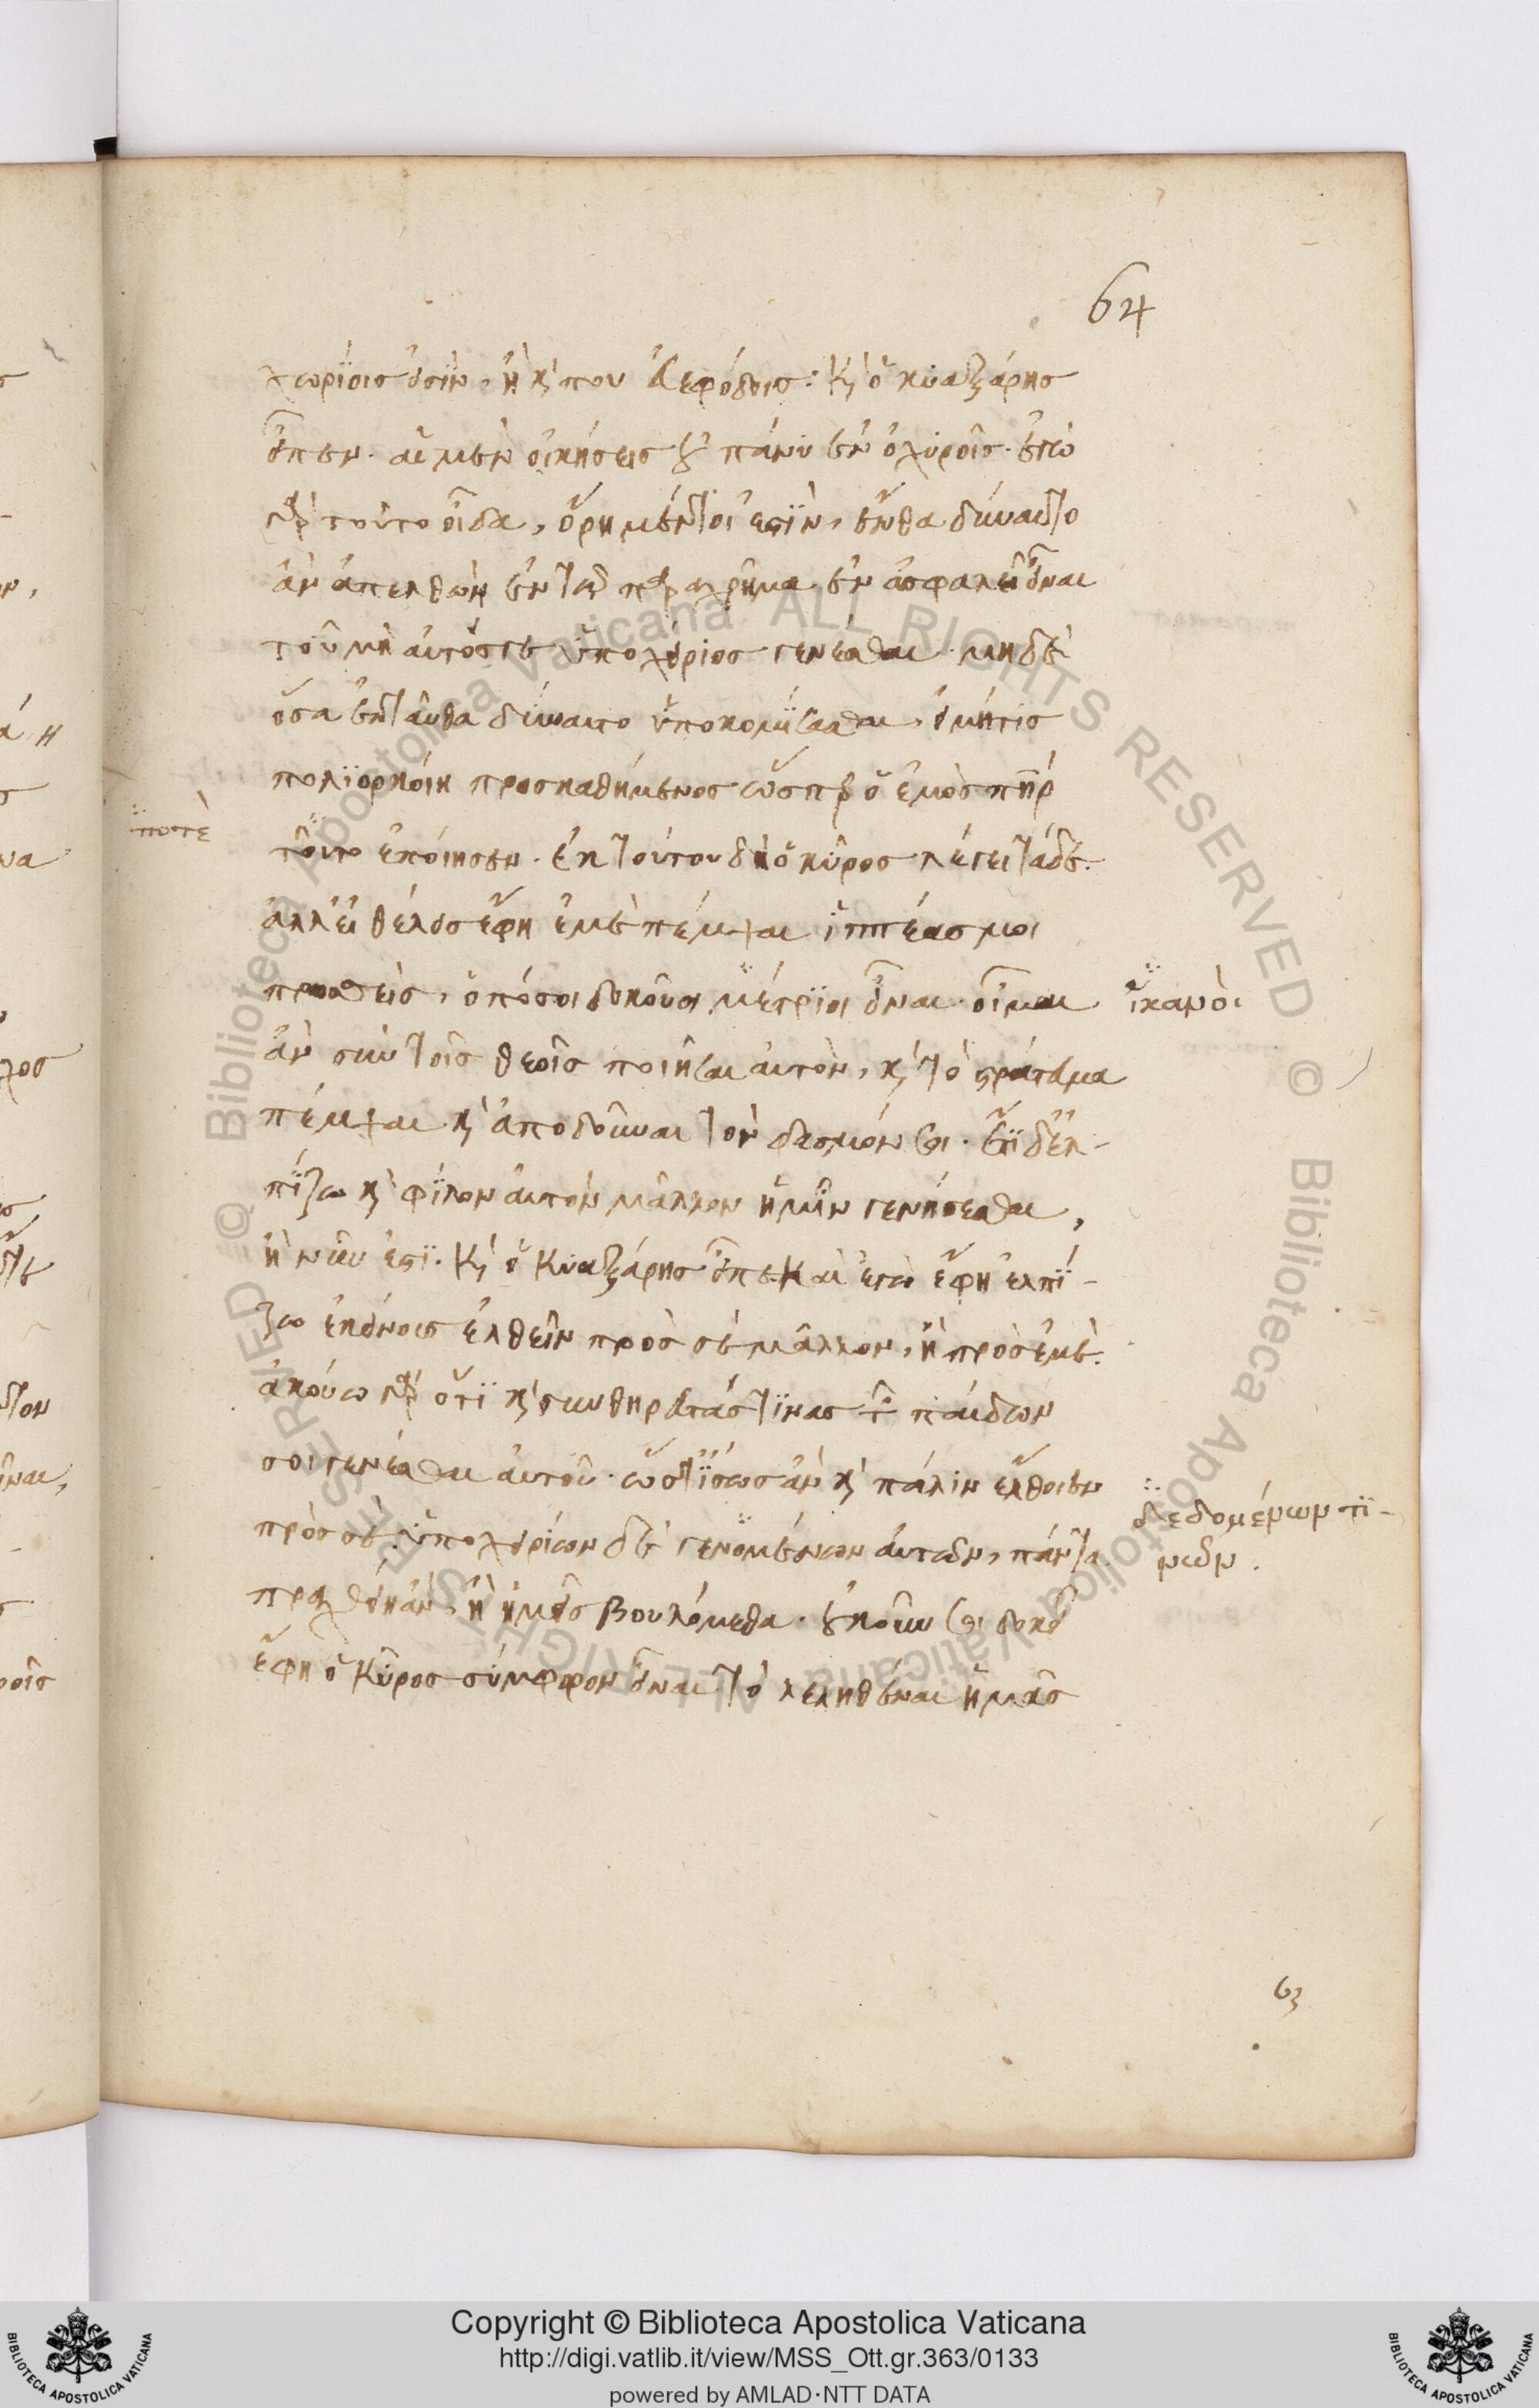 64
χωρίοις εἰσὶν, ἢ καί που εὐεφόδοις: καὶ ὁ κυαξάρης
εἶπεν. αἱ μὲν οἰκήσεις οὐ πάνυ ἐν ὀχυροῖς. ἐγὼ
γὰρ τοῦτο οἶδα, ὄρη μέντοι ἐστὶν, ἔνθα δύναιτο
ἂν ἀπελθὼν ἐν τῶ παραχρῆμα ἐν ἀσφαλεῖ εἶναι
τοῦ μὴ αὐτός γε ὑποχείριος γενέσθαι. μηδὲ
ὅσα ἐνταῦθα δύναιτο ὑπεκομίσασθαι, εἰ μήτις
πολιορκοίη προσκαθήμενος ὥσπερ ὁ ἐμὸς πὴρ
ποτὲ
τοῦτο ἐποίησεν. ἐκ τούτου δὴ ὁ κῦρος λέγει τάδε.
ἀλλ' εἰ θέλεις ἔφη ἐμὲ πέμψαι ἱππέας μοι
προσθεὶς, ὁπόσοι δοκοῦσι μέτριοι εἶναι. οἶμαι
ἱκανὸι
ἂν σὺν τοῖς θεοῖς ποιῆσαι αὐτὸν, καὶ τὸ στράτευμα
πέμψαι καὶ ἀποδοῦναι τὸν δασμόν σοι. ἔτι δ' ἐλ-
πίζω καὶ φίλον αὐτὸν μᾶλλον ἡμῖν γενήσεσθαι,
ἢ νῦν ἐστι. καὶ ὁ Κυαξάρης εἶπε. Καὶ ἐγὼ ἔφη ἐλπί-
ζω ἐκείνοις ἐλθεῖν πρὸς σὲ μᾶλλον, ἢ πρὸς ἐμὲ.
ἀκούω γὰρ ὅτι καὶ συνθηρευτάς τινας τῶν παίδων
σοι γενέσθαι αὐτοῦ. ὥστ' ἴσως ἂν καὶ πάλιν ἔλθοιεν
πρὸς σὲ. ὑποχειρίων δὲ γενομένων αὐτῶν, πάντα
δεδομένων τι-
νῶν.
πραχθείη ἂν, ἢ ἡμεῖς βουλόμεθα. οὐκοῦν σοι δοκεῖ
ἔφη ὁ Κῦρος σύμφορον εἶναι τὸ λεληθέναι ἡμᾶς
63
Copyright © Biblioteca Apostolica Vaticana
http://digi.vatlib.it/view/MSS_Ott.gr.363/0133
powered by AMLAD·NTT DATA
BIBLIOTECA APOSTOLICA VATICANA
BIBLIOTECA APOSTOLICA VATICANA
© Biblioteca Apostolica Vaticana ALL RIGHTS RESERVED © Biblioteca Apostolica Vaticana ALL RIGHTS RESERVED